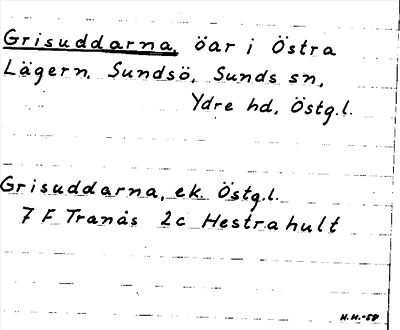 Grisuddarna, öar i Östra
Lägern. Sundsö, Sunds sn,
Ydre hd, Östg.l.
Grisuddarna, ek. Östg.l.
7 F Tranås 2c Hestrahult
H.H.-59